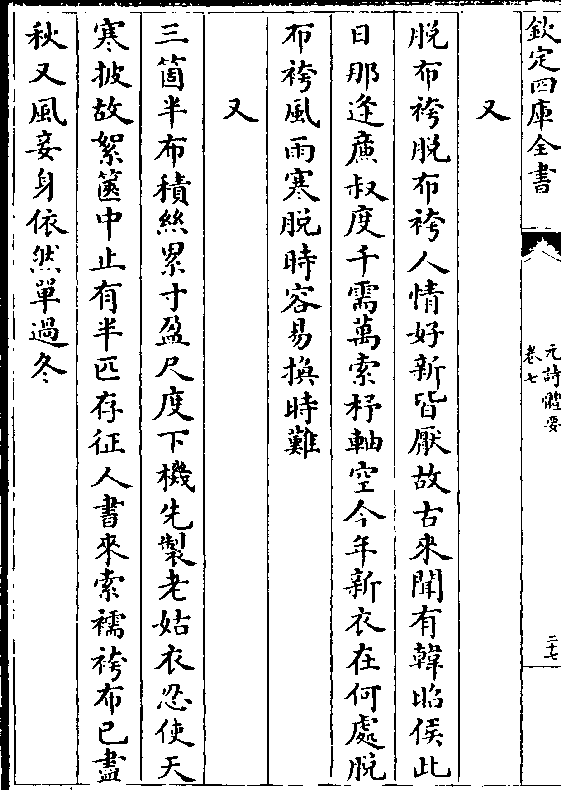 欽定四庫全書
元詩體要
卷七
二十七
又
脱布袴脱布袴人情好新皆厭故古來聞有韓昭侯此
日那逢㢘叔度千需萬索杼軸空今年新衣在何處脱
布袴風雨寒脱時容易換時難
又
三箇半布積絲累寸盈尺度下機先製老姑衣忍使天
寒披故絮篋中止有半匹存征人書來索襦袴布已盡
秋又風妾身依然單過冬